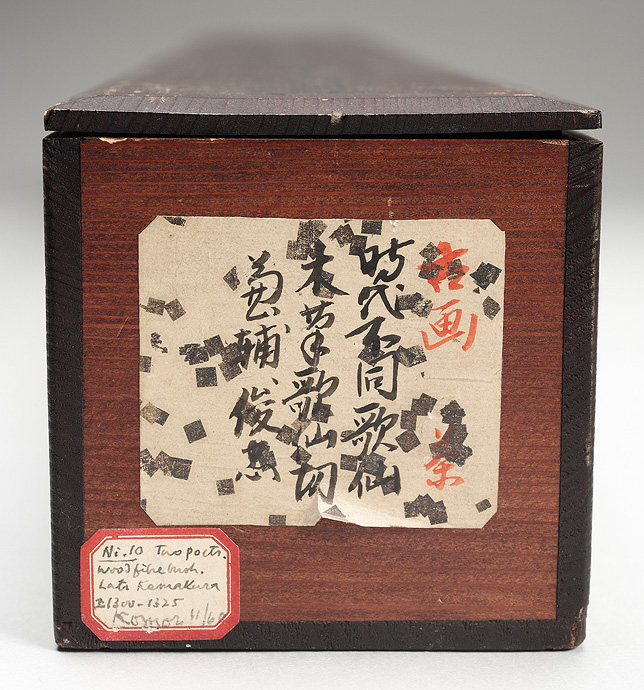 古画 茶
時代不同歌仙
木筆歌仙切
兼輔 俊恵
Ni.10 Two poets.
Wood fibre brush.
Late Kamakura
±1300-1325
Komor 11/60